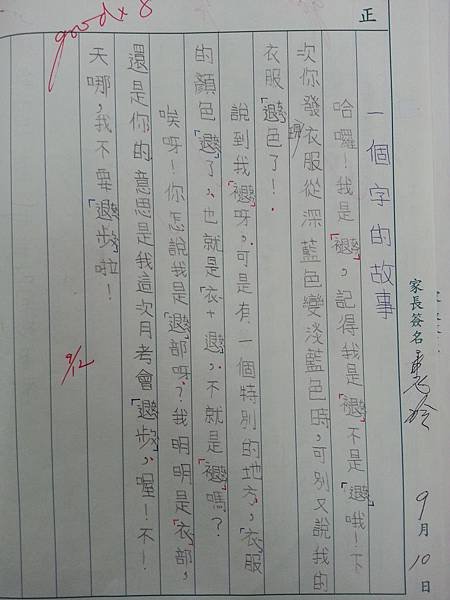 正
家長簽名
9月10日
一個字的故事
哈囉！我是「褪」，記得我是「褪」不是「退」哦！下
次你發現衣服從深藍色變淺藍色時，可別又說我的
衣服「退」色了！
說到我「褪」呀，可是有一個特別的地方，「衣」服
的顏色「退」了，也就是「衣」+「退」，不就是「褪」嗎？
唉呀！你怎說我是「退」部呀？我明明是「衣」部，
還是你的意思是我這次月考會「退步」，喔！不！
天哪，我不要「退步」啦！
goodx8
9/12